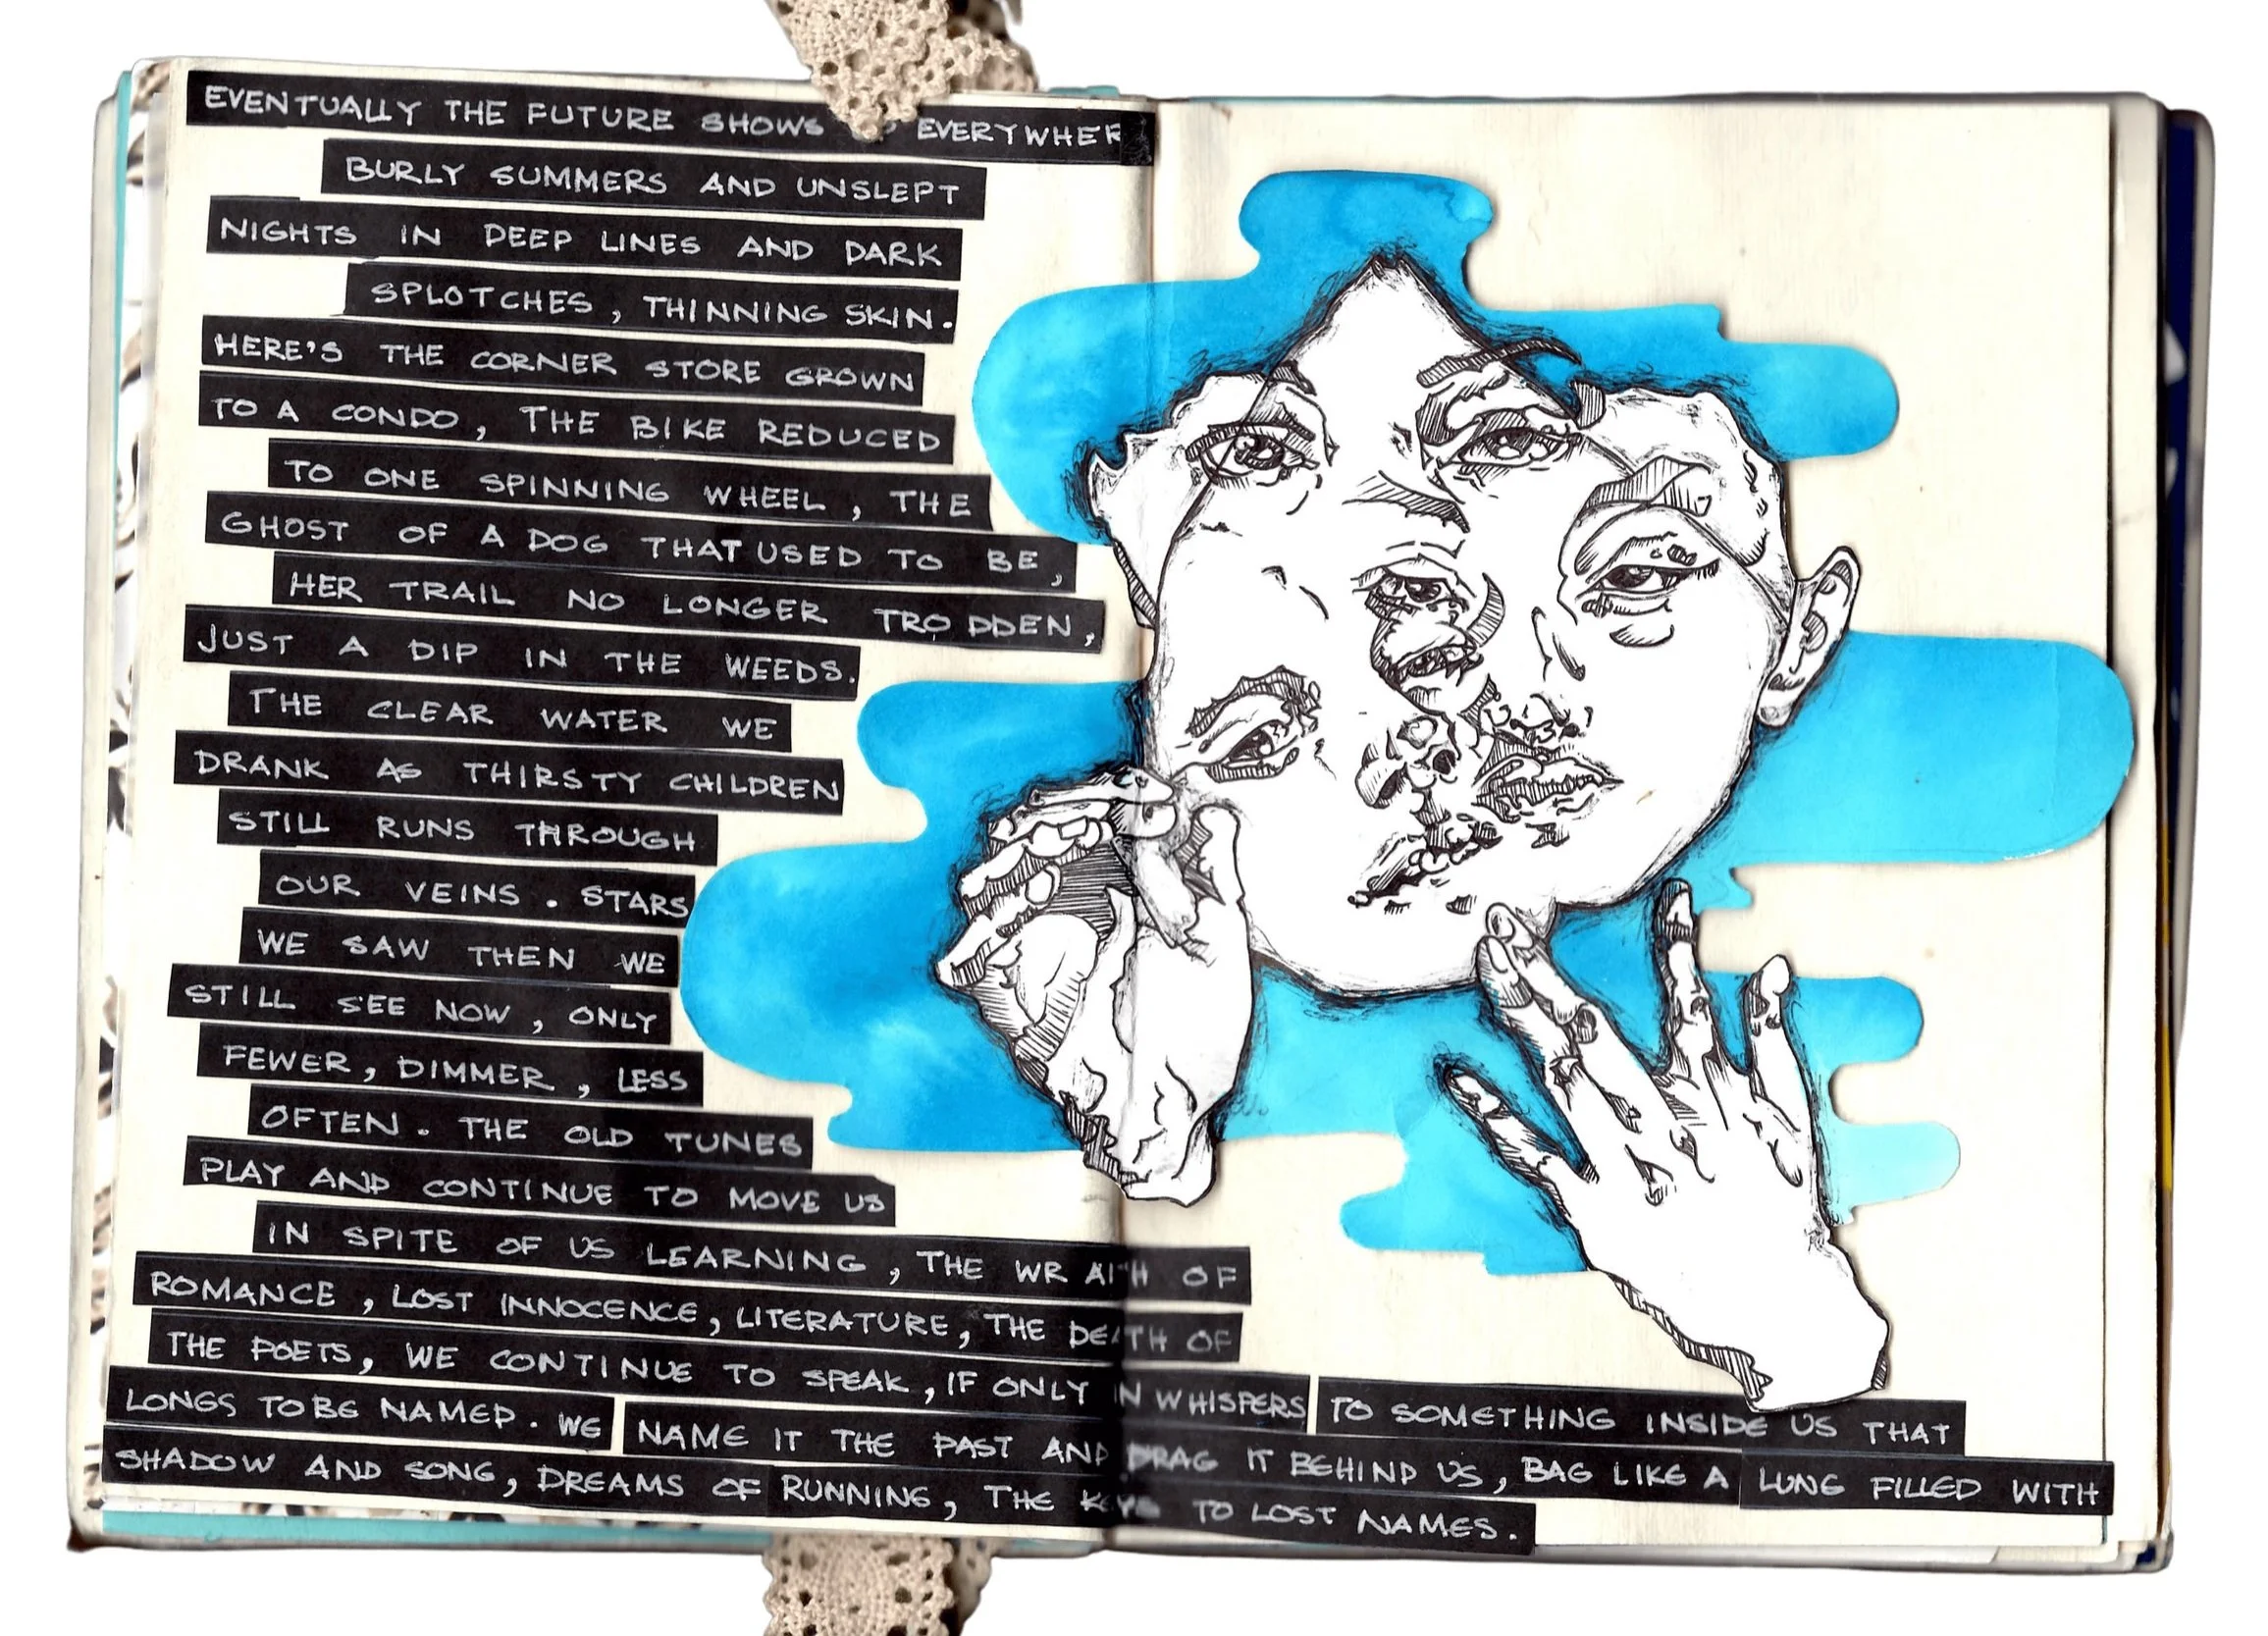 EVENTUALLY THE FUTURE SHOWS EVERYWHER
BURLY SUMMERS AND UNSLEPT
NIGHTS IN DEEP LINES AND DARK
SPLOTCHES, THINNING SKIN.
HERE'S THE CORNER STORE GROWN
TO A CONDO, THE BIKE REDUCED
TO ONE SPINNING WHEEL, THE
GHOST OF A DOG THAT USED TO BE,
HER TRAIL NO LONGER TRODDEN,
JUST A DIP IN THE WEEDS.
THE CLEAR WATER WE
DRANK AS THIRSTY CHILDREN
STILL RUNS THROUGH
OUR VEINS. STARS
WE SAW THEN WE
STILL SEE NOW, ONLY
FEWER, DIMMER, LESS
OFTEN. THE OLD TUNES
PLAY AND CONTINUE TO MOVE US
IN SPITE OF US LEARNING, THE WRAITH OF
ROMANCE, LOST INNOCENCE, LITERATURE, THE DEATH OF
THE POETS, WE CONTINUE TO SPEAK, IF ONLY IN WHISPERS TO SOMETHING INSIDE US THAT
LONGS TO BE NAMED. WE NAME IT THE PAST AND DRAG IT BEHIND US, BAG LIKE A LUNG FILLED WITH
SHADOW AND SONG, DREAMS OF RUNNING, THE KEYS TO LOST NAMES.